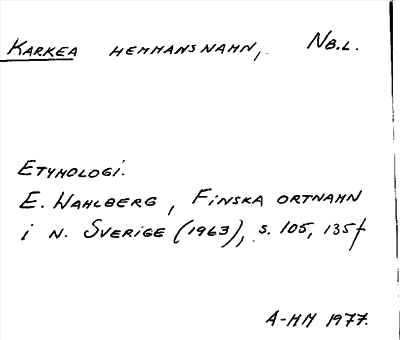 KARKEA HEMMANSNAMN, NB.L.
ETYMOLOGI.
E. WAHLBERG, FINSKA ORTNAMN
I N. SVERIGE (1963), S. 105, 135f
A-MM 1977.